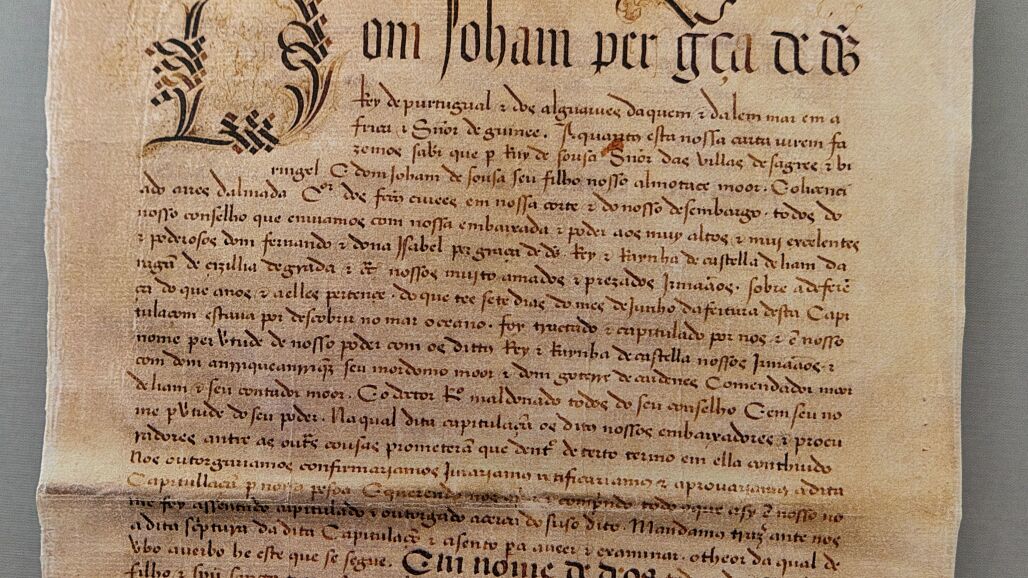 Dom Joham per gça de ds
Rey de purtugual & dos alguarues daquem & dalem mar em a
frica & Snor de guinee. A quantos esta nossa carta virem fa
zemos sabr que p Ruy de sousa Snor das villas de sagres & bi
ringel E dom Joham de sousa seu filho nosso almotace moor. E o licenci
ado aires dalmada Cor dos feitos ciuees em nossa corte & do nosso desembargo. todos do
nosso conselho que enuiamos com nossa embaixada & poder aos muy altos & mui excelentes
& poderosos dom fernando & dona Isabel per graça de ds Rey & Raynha de castella de liam da
ragam de cizillia de grada & nossos muito amados & prezados Irmãaos. sobre a defere
ça do que a nos & a elles pertence. do que tee sete dias do mes de Junho da feitura desta Capi
tulacom estaua por descobrir no mar oceano. foy tractado & capitulado por nos & e nosso
nome per vtude de nosso poder com os dittos Rey & Raynha de castella nossos Irmãaos. &
com dom anrrique anrriqz seu mordomo moor & dom goterre de cardenes Comendador maor
de liam & seu contador moor. E o doctor Ro maldonado todos do seu conselho E em seu no
me p vtude do seu poder. Na qual dita capitulaçam os dito nossos embaixadores & procu
radores antre as outras cousas prometeram que dento de certo termo em ella conthiudo
Nos outorguariamos confirmariamos Jurariamos ratificariamos & aprouariamos a dita
Capitullaçam p nossa pesoa E querendo nos & comprindo todo o que asy e nosso no
me foy assentado capitulado & outorgado acerca do suso dito. Mandamos traz ante nos
a dita scptura da dita Capitulaço & asento pa a veer & examinar. o theor da qual de
vbo a verbo he este que se segue. Em nome de deos
filho & spu